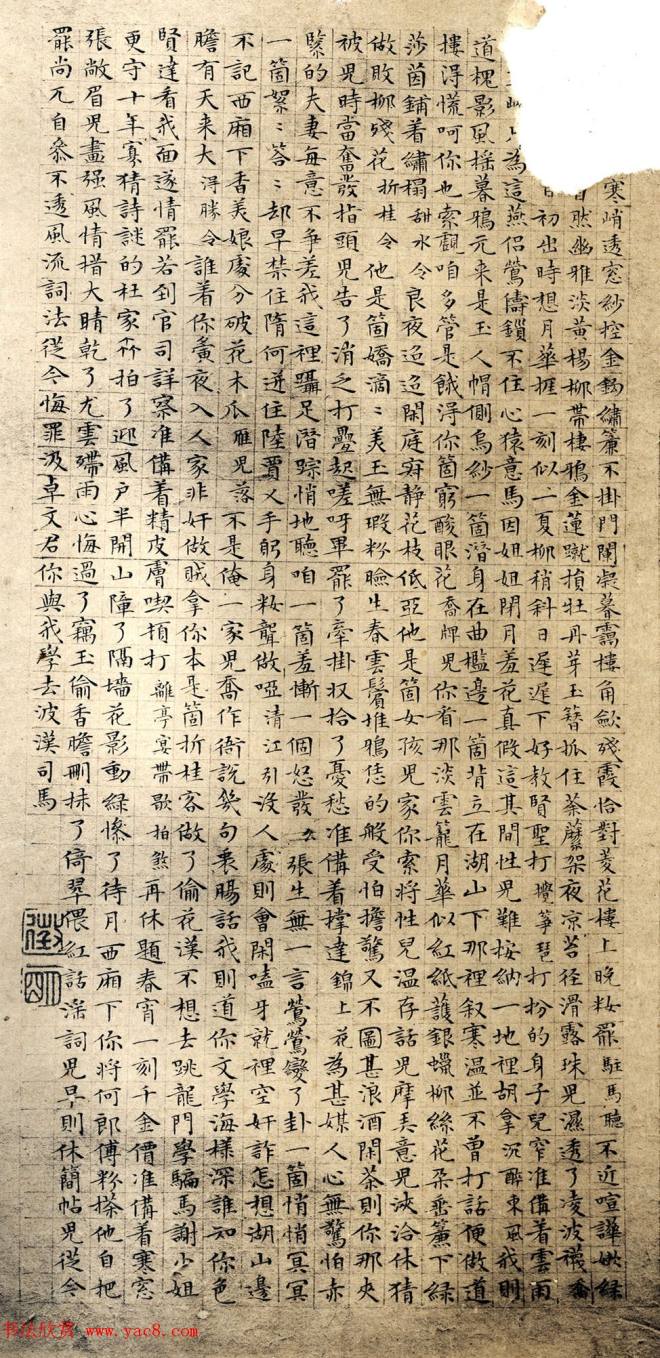 寒峭透窓紗控金鈎繡簾不掛門闌凝暮靄樓角歛殘霞恰對菱花樓上晚妝罷 駐馬聽 不近喧譁嫩緑
然幽雅淡黃楊柳帶棲鴉金蓮蹴損牡丹芽玉簪抓住荼蘼架夜凉苔徑滑露珠兒濕透了凌波襪 喬
日初出時想月華捱一刻似一夏柳稍斜日遲遲下好教賢聖打 攪箏琶 打扮的身子兒窄准備着雲雨
只為這燕侶鶯儔鎖不住心猿意馬因姐姐閉月羞花真假這其間性兒難按納一地裡胡拿 沉醉東風 我則
道槐影風揺暮鴉元来是玉人帽側烏紗一箇潛身在曲檻邊一箇背立在湖山下那裡叙寒温並不曽打話便做道
摟得慌呵你也索覰咱多管是餓得你箇窮酸眼花 喬牌兒 你看那淡雲籠月華似紅紙護銀蠟柳絲花朶垂簾下緑
莎茵鋪着繡榻 甜水令 良夜迢迢閑庭寂静花枝低亞他是箇女孩兒家你索將性兒温存話兒摩弄意兒浹洽休猜
做敗柳殘花 折桂令 他是箇嬌滴〻美玉無瑕粉臉生春雲鬢堆鴉恁的般受怕擔驚又不圖甚浪酒閑茶則你那夹
被兒時當奮發指頭兒告了消乏打疊起嗟呀畢罷了牽掛収拾了憂愁准備着撑達 錦上花 為甚媒人心無驚怕赤
緊的夫妻每意不争差我這裡躡足潛踪悄地聽咱一箇羞慚一個怒發 幺 張生無一言鶯鶯變了卦一箇悄悄冥冥
一箇絮〻答〻却早禁住隋何迸住陸賈叉手躬身粧聾做啞 清江引 没人處則會閑嗑牙就裡空奸詐怎想湖山邊
不記西廂下香美娘處分破花木瓜 雁兒落 不是俺一家兒喬作衙說幾句衷腸話我則道你文學海様深誰知你色
膽有天来大 得勝令 誰着你夤夜入人家非奸做賊拿你本是箇折桂客做了偷花漢不想去跳龍門學騙馬謝少姐
賢達看我面遂情罷若到官司詳察准備着精皮膚喫損打 離亭宴帶歇拍煞 再休題春宵一刻千金價准備着寒窓
更守十年寡猜詩謎的杜家䇿拍了迎風户半開山障了隔墻花影動緑慘了待月西廂下你將何郎傅粉搽他自把
張敞眉兒畫强風情措大晴乾了尤雲殢雨心悔過了竊玉偷香膽刪抹了倚翠偎紅話淫詞兒早則休簡帖兒從今
罷尚兀自叅不透風流詞法從今悔罪汲卓文君你與我學去波漢司馬
徵明
书法欣赏 www.yac8.com